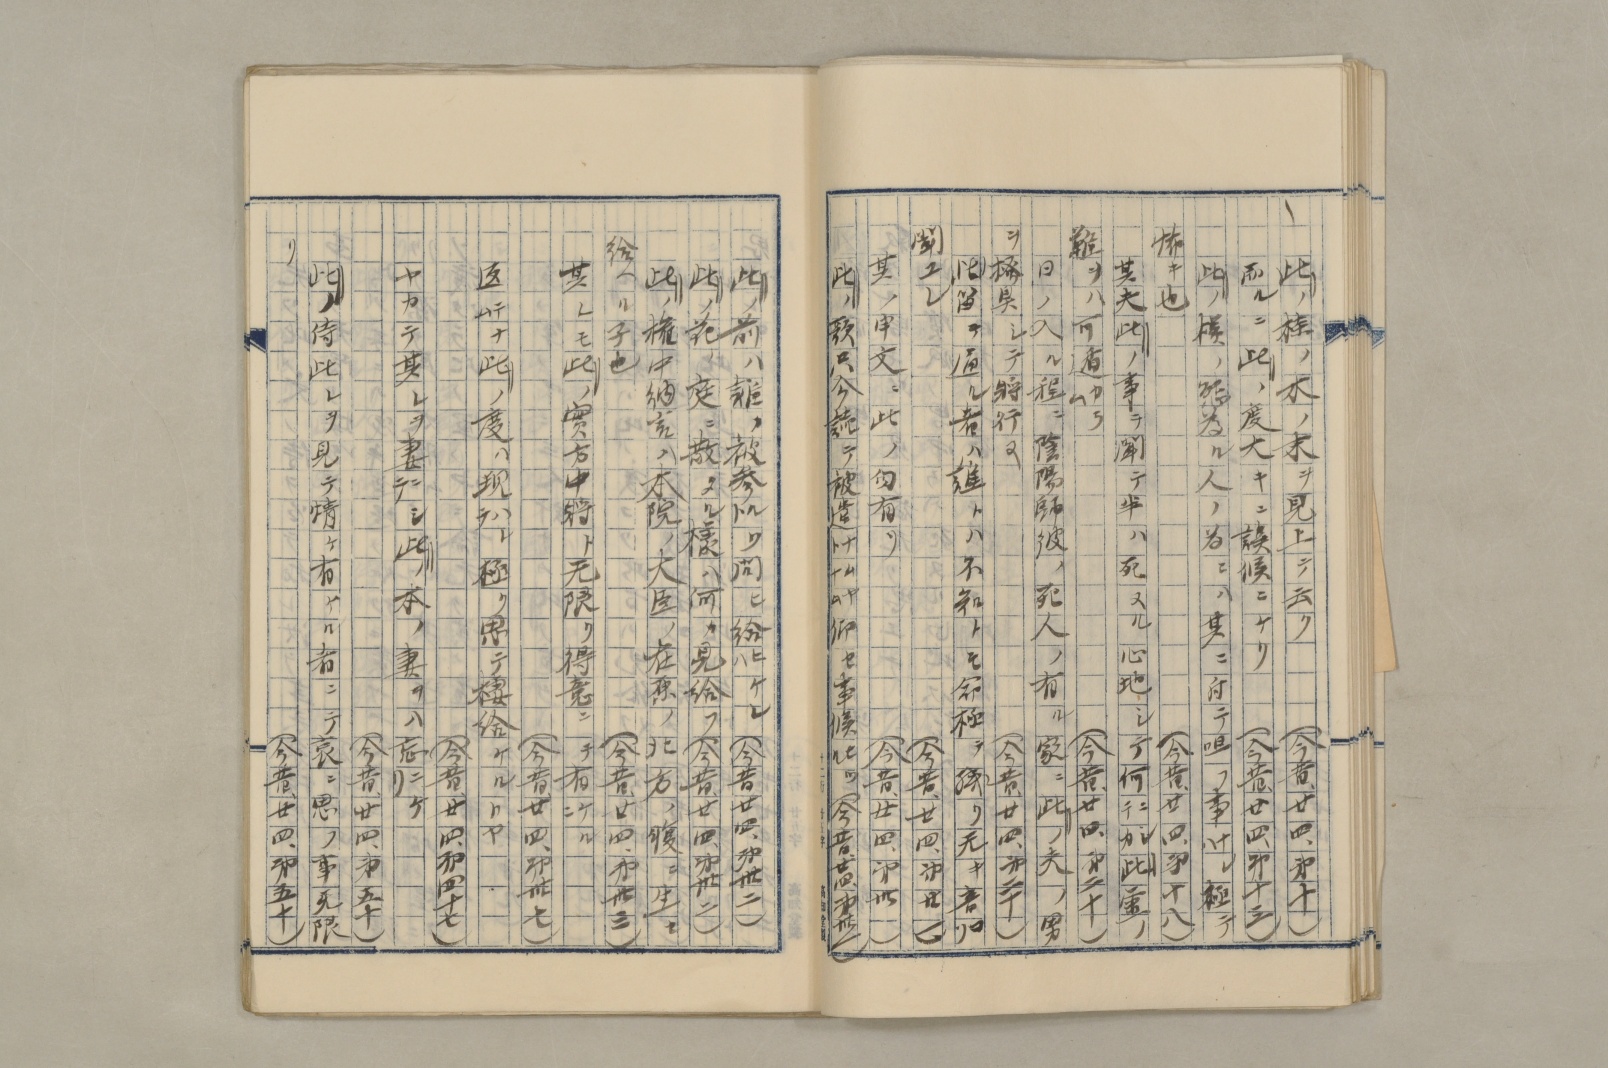 此ノ桂ノ木ノ末ヲ見上テ云ク
（今昔、廿四、第十）
而ルニ此ノ度大キニ誤候ニケリ
（今昔、廿四、第十三）
此ノ様ノ態為ル人ノ為ニハ其ニ付テ咀フ事ハ極テ
怖キ也
（今昔、廿四、第十八）
其夫此ノ事ヲ聞テ半ハ死ヌル心地シテ何ニシテカ此霊ノ
難ヲハ可遁カラム
（今昔、廿四、第二十）
日ノ入ル程ニ陰陽師彼ノ死人ノ有ル家ニ此ノ夫ノ男
ヲ搔具シテ将行ヌ
（今昔、廿四、第二十）
此笛ヲ
者ハ誰トハ不知トモ命極ヲ残リ无キ音
聞エレ
（今昔、廿四、第廿一）
其ノ申文ニ此ノ句有リ
（今昔廿四、第卅）
此ノ歌只今読テ
仰セ事候ヒツ（今昔廿四第卅一）
此ノ前ハ誰カ被参タルゾト問ヒ給ヒケレハ
（今昔、廿四、第卅二）
此ノ花ノ庭ニ散タル様ハ何カ見給フ
（今昔、廿四、第卅二）
此ノ権中納言ハ本院ノ大臣ノ在原ノ北方ノ腹ニ生セ
給ヘル子也
（今昔、廿四、第卅三）
其レモ此ノ實方中将ト无限リ得意ニテ有ケルニ
（今昔、廿四、第卅七）
返
此ノ度ハ現ハレテ極ク思テ
給ケルトヤ
（今昔、廿四、第四十七）
ヤカテ其レヲ妻ニシテ此ノ本ノ妻ヲハ忘ニケリ
（今昔、廿四、第五十）
此ノ侍此レヲ見テ情ケ有ケル者ニテ哀ニ思フ事无限
リ
（今昔、廿四、第五十）